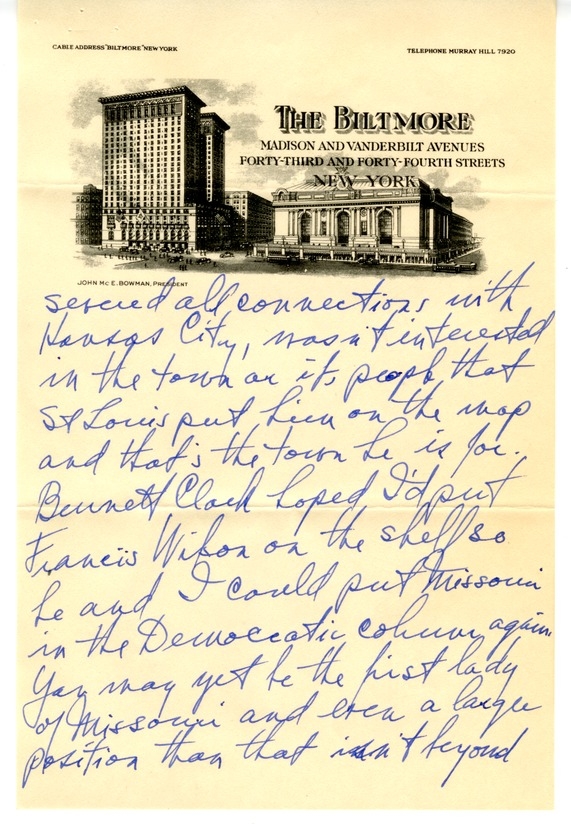 CABLE ADDRESS "BILTMORE" NEW YORK
TELEPHONE MURRAY HILL 7920
THE BILTMORE
MADISON AND VANDERBILT AVENUES
FORTY-THIRD AND FORTY-FOURTH STREETS
NEW YORK
JOHN MC E. BOWMAN, PRESIDENT
severed all connections with
Kansas City, wasn't interested
in the town or its people that
St Louis put him on the map
and that's the town he is for.
Bennett Clark hoped I'd put
Francis Wilson on the shelf so
he and I could put Missouri
in the Democratic column again.
You may yet be the first lady
of Missouri and even a larger
position than that isn't beyond